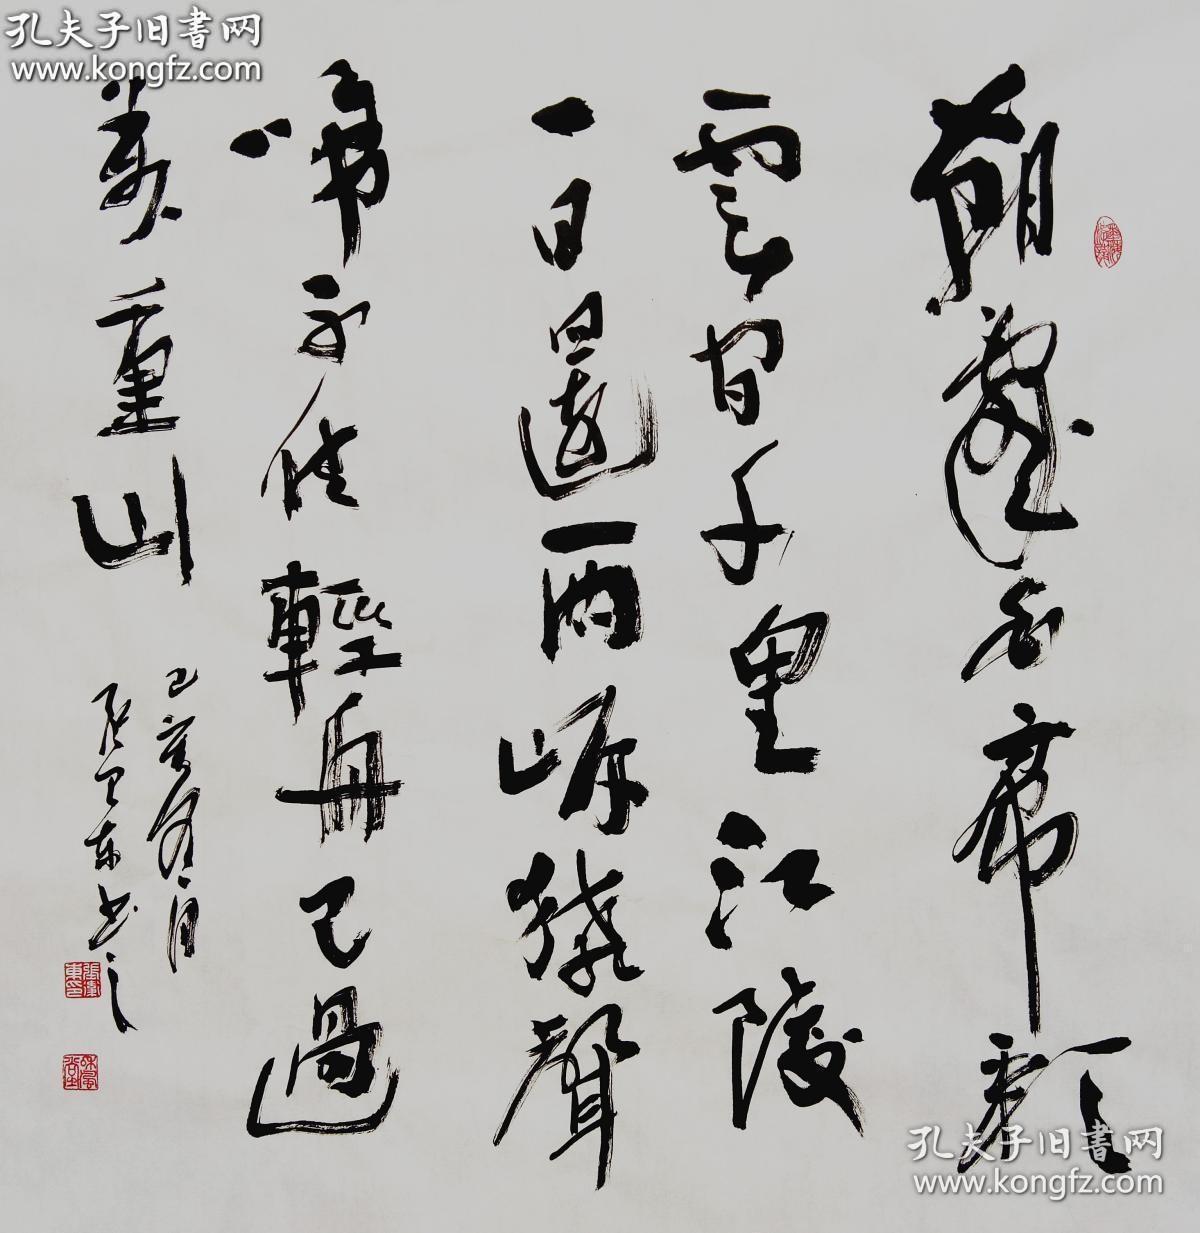 孔夫子旧書网
www.kongfz.com
朝辭白帝彩
雲間千里江陵
一日還兩岸猿聲
啼不住輕舟已過
萬重山
己亥月
張東书之
孔夫子旧書网
www.kongfz.com